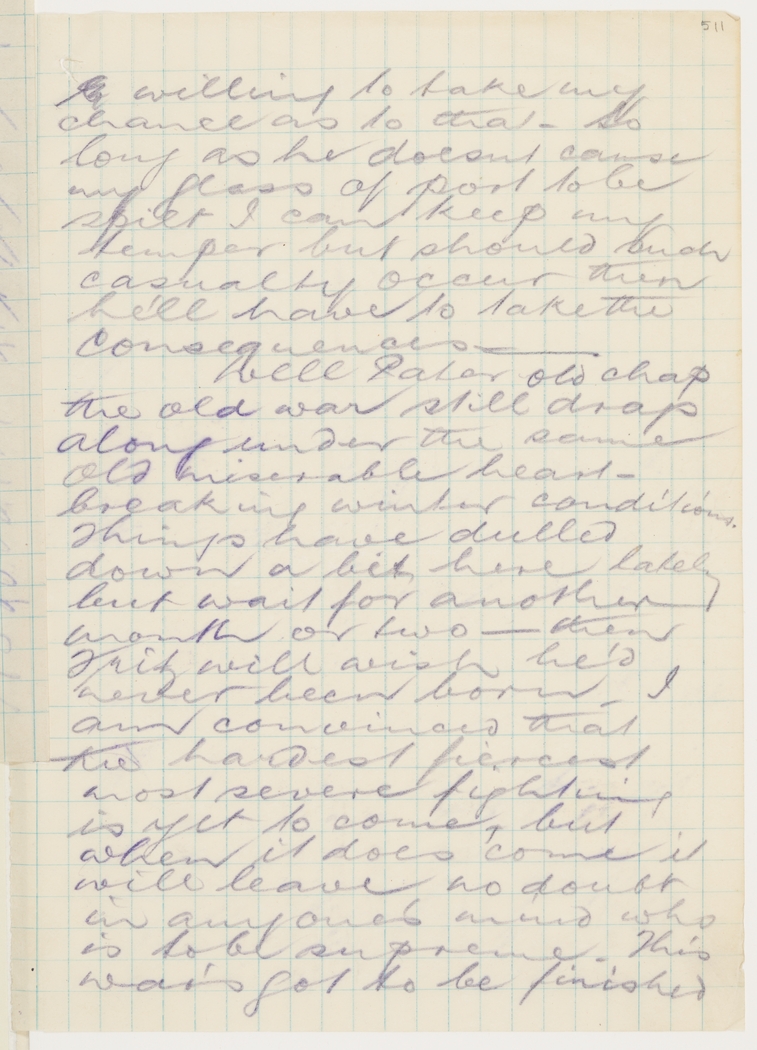 511
willing to take my
chance as to that - So
long as he doesnt cause
my glass of port to be
spilt I can keep my
temper but should such
casualty occur then
he'll have to take the
consequences —
Well Pater old chap
the old war still drags
along under the same
old miserable heart-
breaking winter conditions.
Things have dulled
down a bit here lately
but wait for another
month or two — then
Fritz will wish he'd
never been born. I
am convinced that
the hardest fiercest
most severe fighting
is yet to come, but
when it does come it
will leave no doubt
in anyone's mind who
is to be supreme. This
war's got to be finished